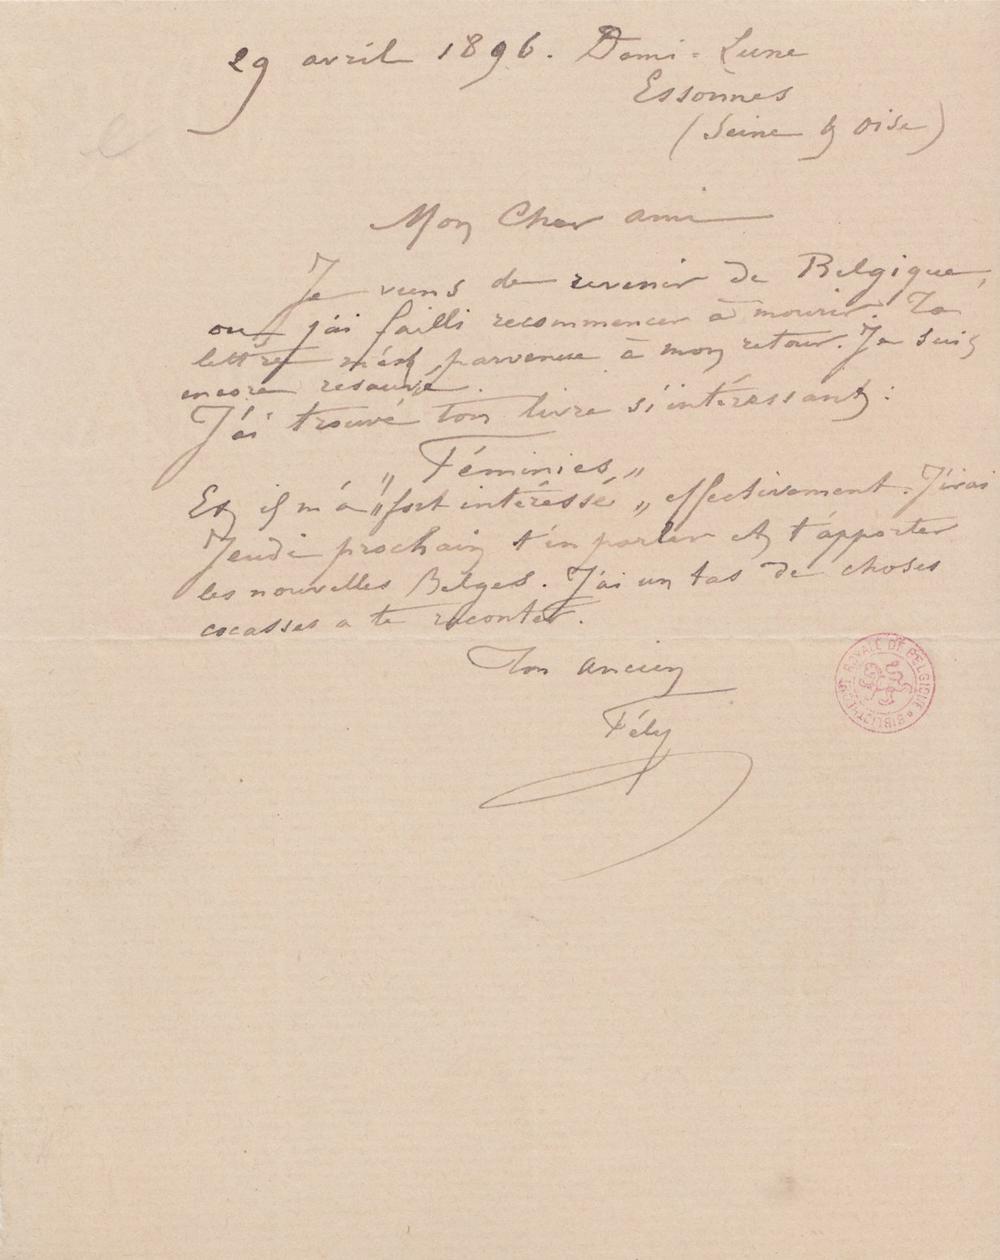 29 avril 1896. Demi-Lune
Essonnes
(Seine & Oise)
Mon Cher ami
Je viens de revenir de Belgique,
ou j'ai failli recommencer à mourir. Ta
lettre m'est parvenue à mon retour. Je suis
encore resauvé.
J'ai trouvé ton livre si intéressant:
„ Féminies „
Et il m'a „ fort intéressé „ effectivement. J'irai
Jeudi prochain t'en parler et t'apporter
les nouvelles Belges. J'ai un tas de choses
cocasses a te raconter.
Ton ancien
Fély
BIBLIOTHÈQUE ROYALE DE BELGIQUE